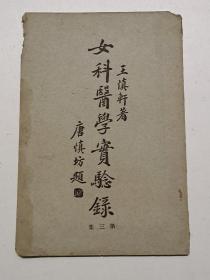 王慎軒著
女科醫學實驗錄
唐慎坊題
集三第